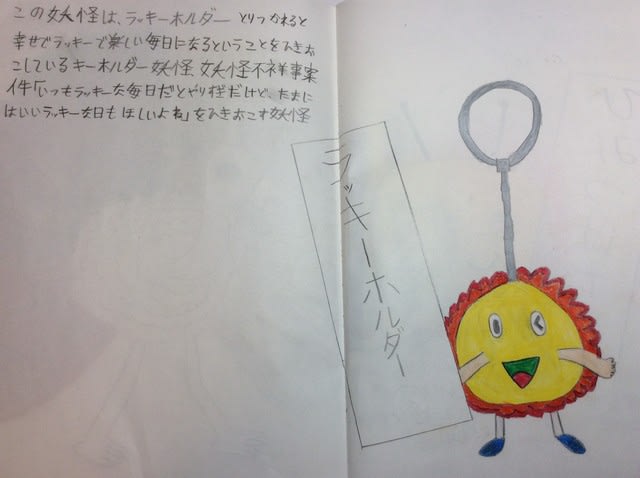 この妖怪は、ラッキーホルダー とりつかれると
幸せでラッキーで楽しい毎日になるということをひきお
こしているキーホルダー妖怪 妖怪不祥事案
件「いつもラッキーな毎日だとやりすぎだけど、たまに
はいいラッキーな日も ほしいよね」をひきおこす妖怪
ラッキーホルダー